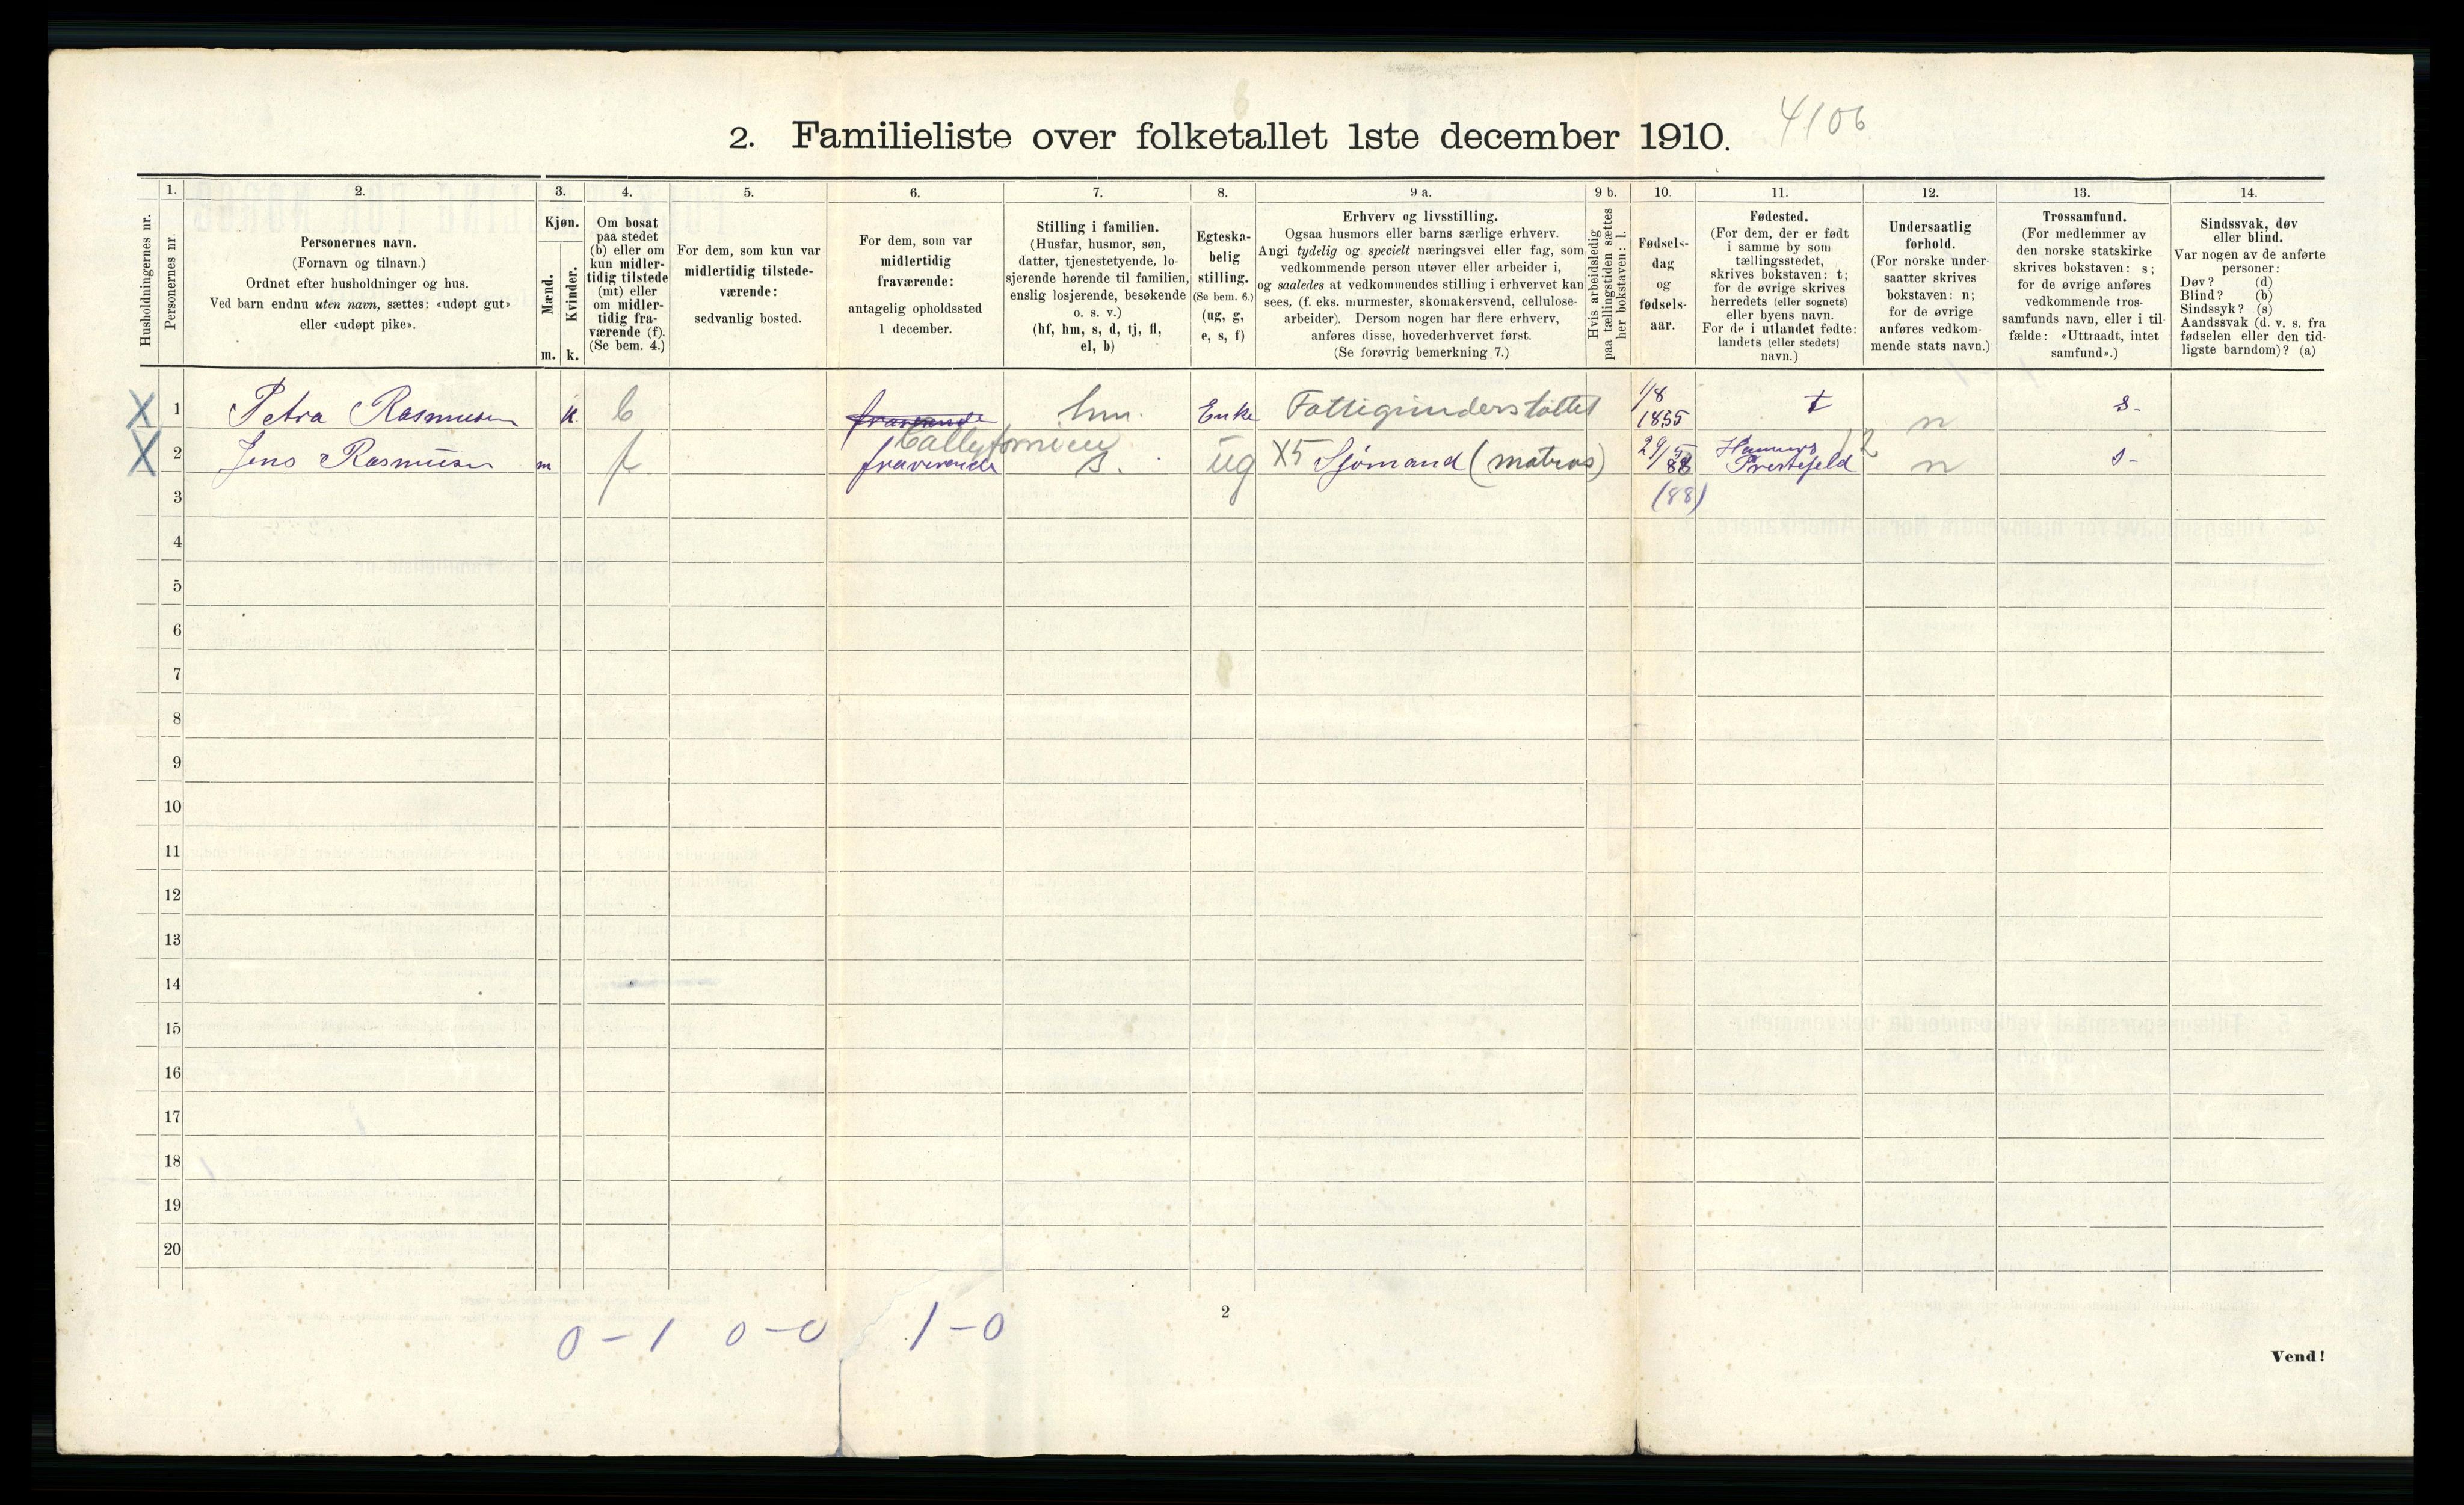 2. Familieliste over folketallet 1ste december 1910.
4106
Husholdningernes nr.
1.
Personernes nr.
2.
Personernes navn.
(Fornavn og tilnavn.)
Ordnet efter husholdninger og hus.
Ved barn endnu uten navn, sættes: «udøpt gut»
eller «udøpt pike».
3.
Kjøn.
Mænd.
Kvinder.
m. k.
4.
Om bosat
paa stedet
(b) eller om
kun midler-
tidig tilstede
(mt) eller
om midler-
tidig fra-
værende (f).
(Se bem. 4.)
5.
For dem, som kun var
midlertidig tilstede-
værende:
sedvanlig bosted.
6.
For dem, som var
midlertidig
fraværende:
antagelig opholdssted
1 december.
7.
Stilling i familien.
(Husfar, husmor, søn,
datter, tjenestetyende, lo-
sjerende hørende til familien,
enslig losjerende, besøkende
o. s. v.)
(hf, hm, s, d, tj, fl,
el, b)
8.
Egteska-
belig
stilling.
(Se bem. 6.)
(ug, g,
e, s, f)
9 a.
Erhverv og livsstilling.
Ogsaa husmors eller barns særlige erhverv.
Angi tydelig og specielt næringsvei eller fag, som
vedkommende person utøver eller arbeider i,
og saaledes at vedkommendes stilling i erhvervet kan
sees, (f. eks. murmester, skomakersvend, cellulose-
arbeider). Dersom nogen har flere erhverv,
anføres disse, hovederhvervet først.
(Se forøvrig bemerkning 7.)
9 b.
Hvis arbeidsledig
paa tællingstiden sættes
her bokstaven: l.
10.
Fødsels-
dag
og
fødsels-
aar.
11.
Fødested.
(For dem, der er født
i samme by som
tællingsstedet,
skrives bokstaven: t;
for de øvrige skrives
herredets (eller sognets)
eller byens navn.
For de i utlandet fødte:
landets (eller stedets)
navn.)
12.
Undersaatlig
forhold.
(For norske under-
saatter skrives
bokstaven: n;
for de øvrige
anføres vedkom-
mende stats navn.)
13.
Trossamfund.
(For medlemmer av
den norske statskirke
skrives bokstaven: s;
for de øvrige anføres
vedkommende tros-
samfunds navn, eller i til-
fælde: «Uttraadt, intet
samfund».)
14.
Sindssvak, døv
eller blind.
Var nogen av de anførte
personer:
Døv? (d)
Blind? (b)
Sindssyk? (s)
Aandssvak (d. v. s. fra
fødselen eller den tid-
ligste barndom)? (a)
X 1 Petra Rasmusen k. b fraverende hm. Enke Fattigunderstøttet 1/8 1855 t n s-
X 2 Jens Rasmusen m f Callyfornien fraverende s. ug X5 Sjømand (matros) 29/5 88 Prestefeld 12 n s-
(88)
3
4
5
6
7
8
9
10
11
12
13
14
15
16
17
18
19
20
0-1 0-0 1-0
2
Vend!